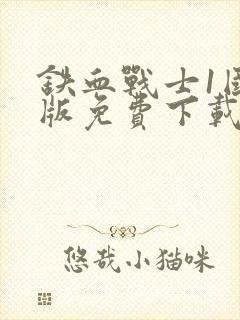 鉄血戰士1國
版免費下載
悠哉小猫咪